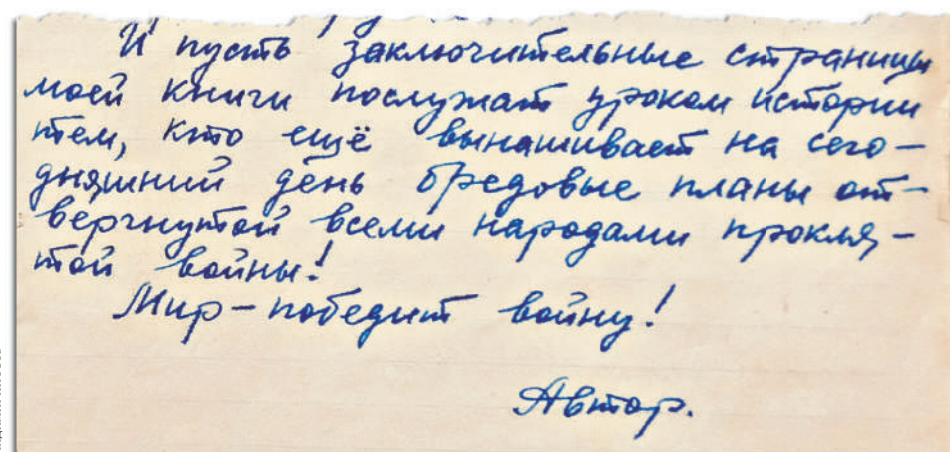 И пусть заключительные страницы
моей книги послужат уроком истории
тем, кто ещё вынашивает на сего-
дняшний день бредовые планы от-
вергнутой всеми народами прокля-
той войны!
Мир - победит войну!
Автор.